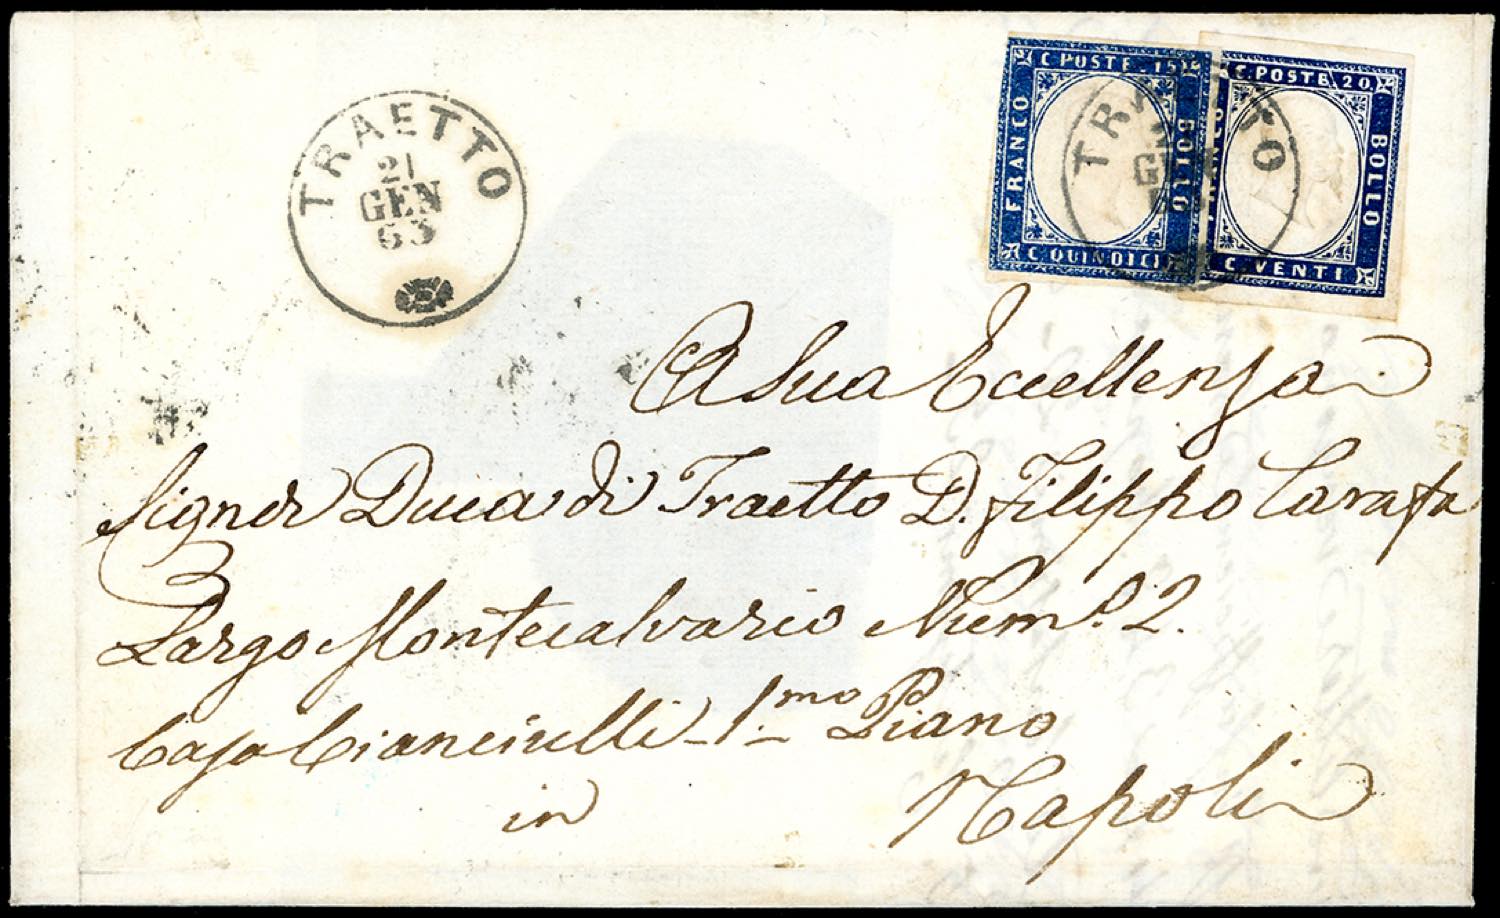 TRAETTO
21
GEN
63
C. POSTE. 15
FRANCO
BOLLO
C. QUINDICI
C. POSTE. 20.
BOLLO
C. VENTI
TR TO
GE
A Sua Eccellenza
Signor Duca di Traetto D. Filippo Carafa
Largo Montecalvario Num.º 2.
Casa Ciancirelli - 1.mo Piano
in Napoli